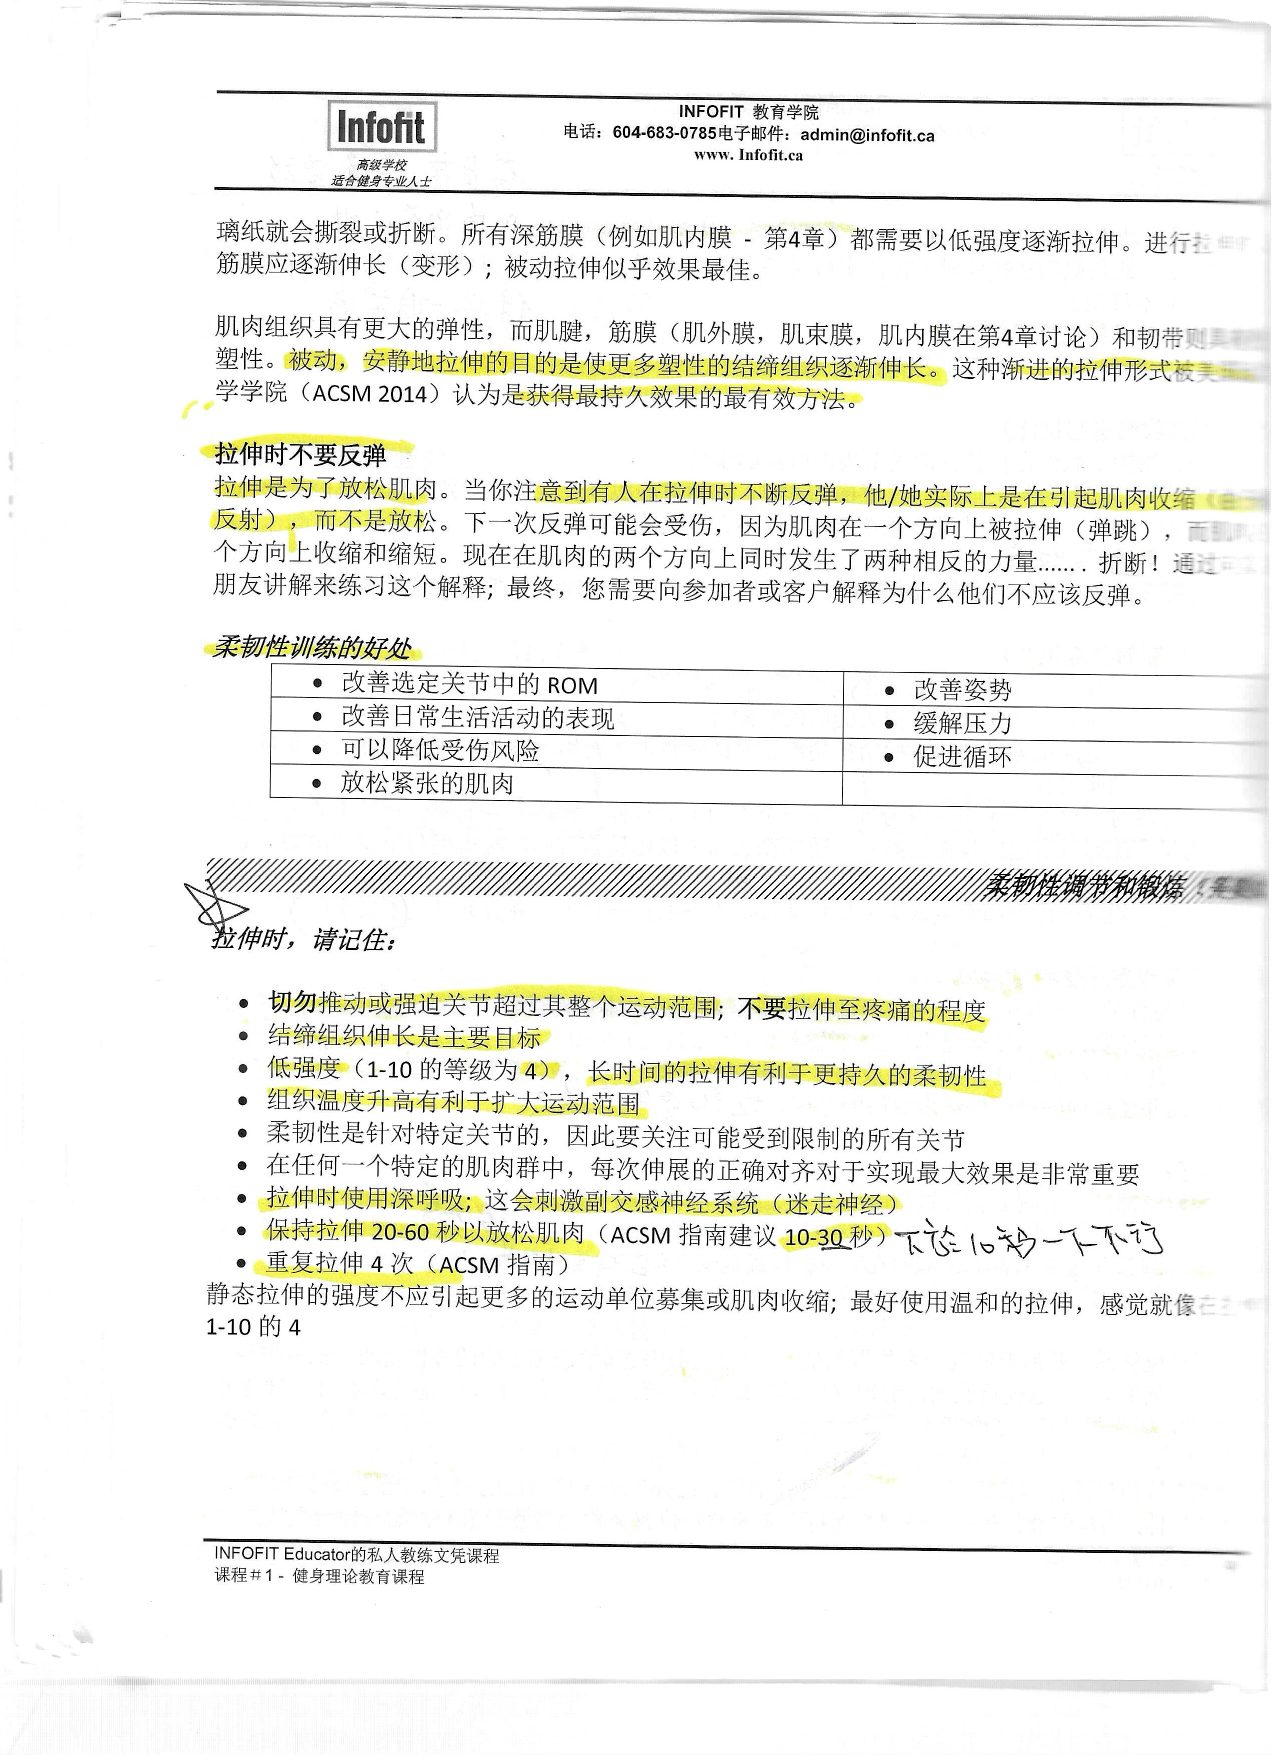 Infofit
高级学校
适合健身专业人士
INFOFIT 教育学院
电话：604-683-0785电子邮件：admin@infofit.ca
www. Infofit.ca
璃纸就会撕裂或折断。所有深筋膜（例如肌内膜 - 第4章）都需要以低强度逐渐拉伸。进行拉
筋膜应逐渐伸长（变形）; 被动拉伸似乎效果最佳。
肌肉组织具有更大的弹性，而肌腱，筋膜（肌外膜，肌束膜，肌内膜在第4章讨论）和韧带则
塑性。被动，安静地拉伸的目的是使更多塑性的结缔组织逐渐伸长。这种渐进的拉伸形式被美
学学院（ACSM 2014）认为是获得最持久效果的最有效方法。
拉伸时不要反弹
拉伸是为了放松肌肉。当你注意到有人在拉伸时不断反弹，他/她实际上是在引起肌肉收缩（由
反射），而不是放松。下一次反弹可能会受伤，因为肌肉在一个方向上被拉伸（弹跳），而肌
个方向上收缩和缩短。现在在肌肉的两个方向上同时发生了两种相反的力量...... . 折断！通过
朋友讲解来练习这个解释; 最终，您需要向参加者或客户解释为什么他们不应该反弹。
柔韧性训练的好处
• 改善选定关节中的 ROM
• 改善姿势
• 改善日常生活活动的表现
• 缓解压力
• 可以降低受伤风险
• 促进循环
• 放松紧张的肌肉
柔韧性调节和锻炼
拉伸时，请记住：
• 切勿推动或强迫关节超过其整个运动范围; 不要拉伸至疼痛的程度
• 结缔组织伸长是主要目标
• 低强度（1-10 的等级为 4），长时间的拉伸有利于更持久的柔韧性
• 组织温度升高有利于扩大运动范围
• 柔韧性是针对特定关节的，因此要关注可能受到限制的所有关节
• 在任何一个特定的肌肉群中，每次伸展的正确对齐对于实现最大效果是非常重要
• 拉伸时使用深呼吸; 这会刺激副交感神经系统（迷走神经）
• 保持拉伸 20-60 秒以放松肌肉（ACSM 指南建议 10-30 秒） 10秒一下不行
• 重复拉伸 4 次（ACSM 指南）
静态拉伸的强度不应引起更多的运动单位募集或肌肉收缩; 最好使用温和的拉伸，感觉就像在
1-10 的 4
INFOFIT Educator的私人教练文凭课程
课程＃1 - 健身理论教育课程